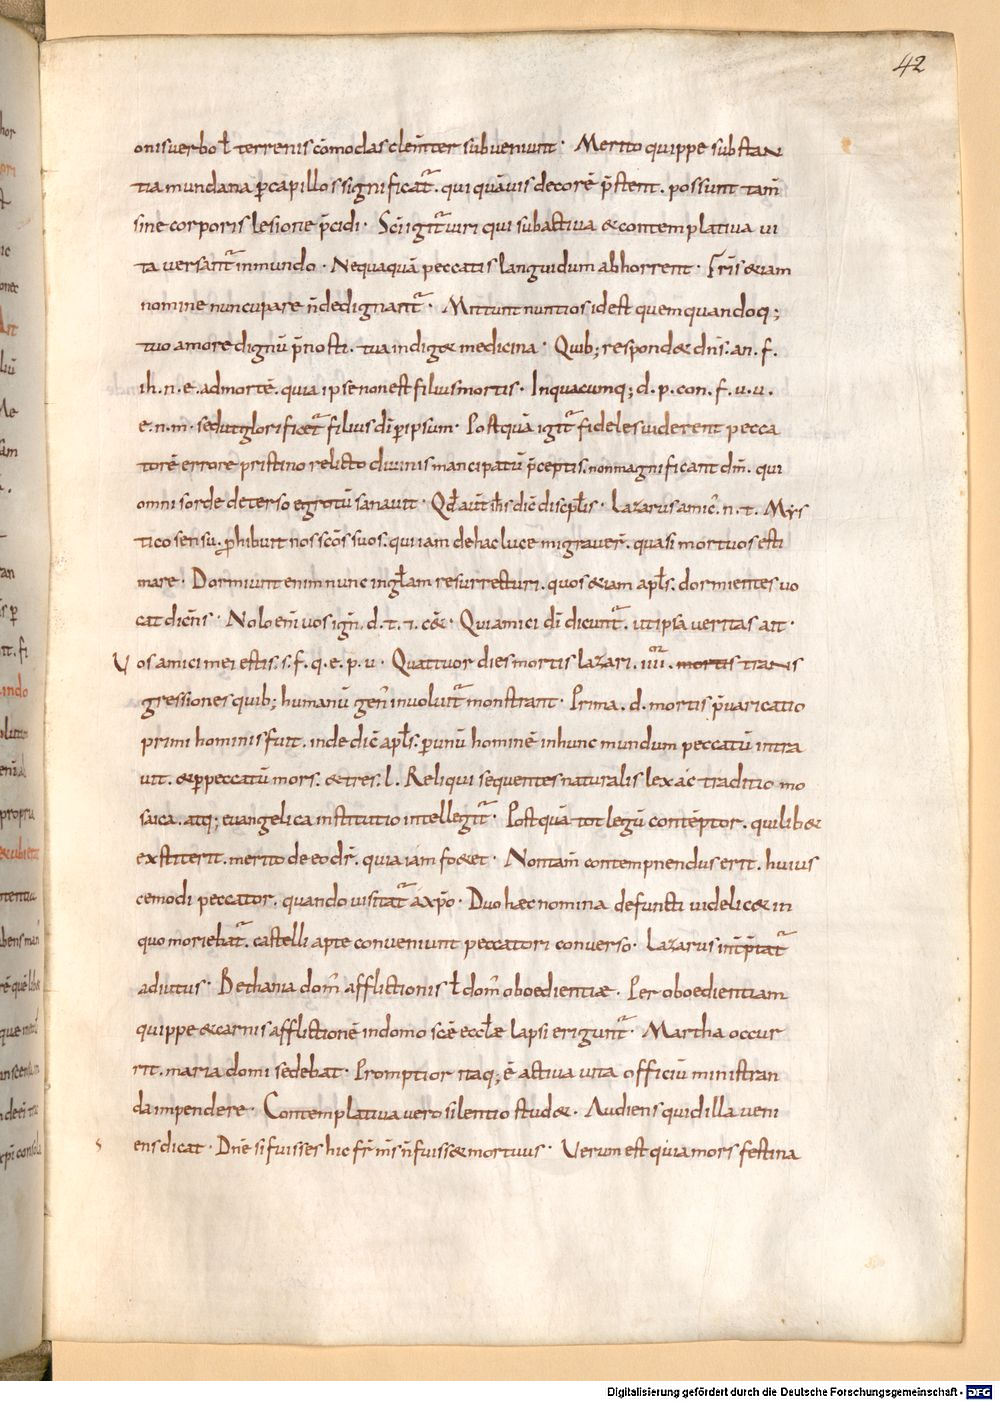 42
onisverbo ł terrenis cōmodis clem̄ter subveniunt · Merito quippe substan
tia mundana p̄ capillos significat᷑. qui quāvis decorē p̄stent. possunt tam̄
sine corporis lesione p̄cidi · Sc̄i igit᷑ viri qui sub activa & contemplativa vi
ta versant᷑ in mundo · Nequaquā peccatis languidum abhorrent · Fr̄is & iam
nomine nuncupare n̄ dedignant᷑ · Mittunt nuntios id est quem quandoq;
tuo amore dignū p̄nosti. tua indig& medicina · Quib; respond& dn̄s. an. f.
ih. n. e. ad mortē. quia ipse non est filius mortis · In quacumq; d. p. con. f. u. u.
e. n. m̄. sed ut glorificet᷑ filius dī p̄ ipsum · Postquā igit᷑ fideles viderent pecca
torē errore pristino relicto divinis mancipatū p̄ceptis. non magnificant dm̄. qui
omni sorde deterso egrotū sanavit · Qd̄ aut̄ ihs̄ dic̄ discipl̄is · Lazarus amic᷒. n. t. Mys
tico sensu. p̄hibuit nos sc̄os suos. qui iam de hac luce migraver̄. quasi mortuos esti
mare · Dormiunt enim nunc in gl̄am resurrecturi. quos & iam apl̄s. dormientes vo
cat dicn̄s · Nolo en̄i vos ign̄. d. t. i. c&̄ · Qui amici dī dicunt᷑. ut ipsa veritas ait ·
Vos amici mei estis. s. f. q. e. p. v · Quattuor dies mortis lazari. iiii or. mortis trans
gressiones quib; humanū gen᷒ involvit᷑ monstrant · Prima. d. mortis p̄varicatio
primi hominis fuit. inde dic̄ apl̄s. p̄ unū hominē in hunc mundum peccatū intra
vit. & p̄ peccatū mors. & tres. l. Reliqui sequentes naturalis lex ac traditio mo
saica. atq; evangelica institutio intellegit᷑ · Postquā tot legū contēptor. quilib&
exstiterit. merito de eo dr̄. quia iam foet&· Non tam̄ contempnendus erit. huius
cemodi peccator. quando visitat᷑ a xp̄o · Duo haec nomina defuncti videlic& in
quo moriebat᷑. castelli apte conveniunt peccatori converso · Lazarus int̄p̄tat᷑
adiutus · Bethania dom᷒ afflictionis ł dom᷒ oboedientiæ · Per oboedientiam
quippe & carnis afflictionē in domo sc̄ē eccl̄æ lapsi erigunt᷑ · Martha occur
rit. maria domi sedebat · Promptior itaq; ē activa vita officiū ministran
da impendere · Contemplativa vero silentio stud& · Audiens quid illa veni
ens dicat · Dn̄e si fuisses hic fr̄ m̄s n̄ fuiss& mortuus · Verum est quia mors festina
Digitalisierung gefördert durch die Deutsche Forschungsgemeinschaft - DFG